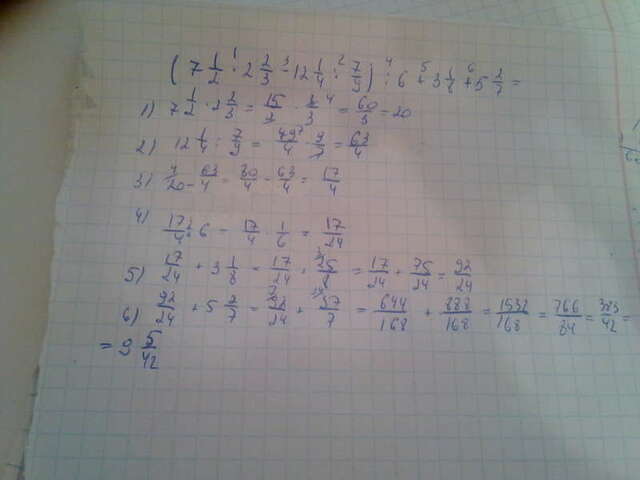 (7 1/2 · 2 2/3 - 12 1/4 : 7/9) : 6 + 3 1/8 + 5 2/7 =
1) 7 1/2 · 2 2/3 = 15/2 · 8/3 = 60/3 = 20
2) 12 1/4 : 7/9 = 49/4 · 9/7 = 63/4
3) 20 - 63/4 = 80/4 - 63/4 = 17/4
4) 17/4 : 6 = 17/4 · 1/6 = 17/24
5) 17/24 + 3 1/8 = 17/24 + 25/8 = 17/24 + 75/24 = 92/24
6) 92/24 + 5 2/7 = 92/24 + 37/7 = 644/168 + 888/168 = 1532/168 = 766/84 = 383/42 =
= 9 5/42